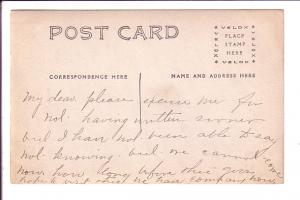 POST CARD
VELOX
PLACE
STAMP
HERE
VELOX
CORRESPONDENCE HERE
NAME AND ADDRESS HERE
My dear please excuse me for
not having written sooner
but I have not been able to say
not knowing but we cannot come
now how long before this goes
we have company now